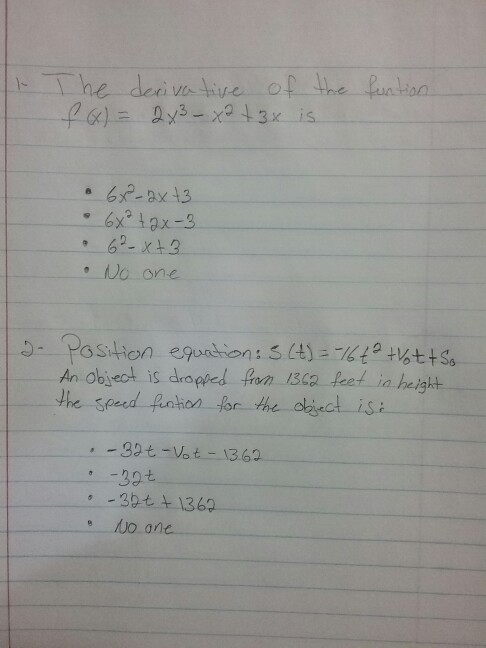 1- The derivative of the funtion
f(x) = 2x³ - x² + 3x is
• 6x² - 2x + 3
• 6x² + 2x - 3
• 6² - x + 3
• No one
2- Position equation: S(t) = -16t² + V₀t + S₀
An object is dropped from 1362 feet in height
the speed funtion for the object is:
• -32t - V₀t - 1362
• -32t
• -32t + 1362
• No one